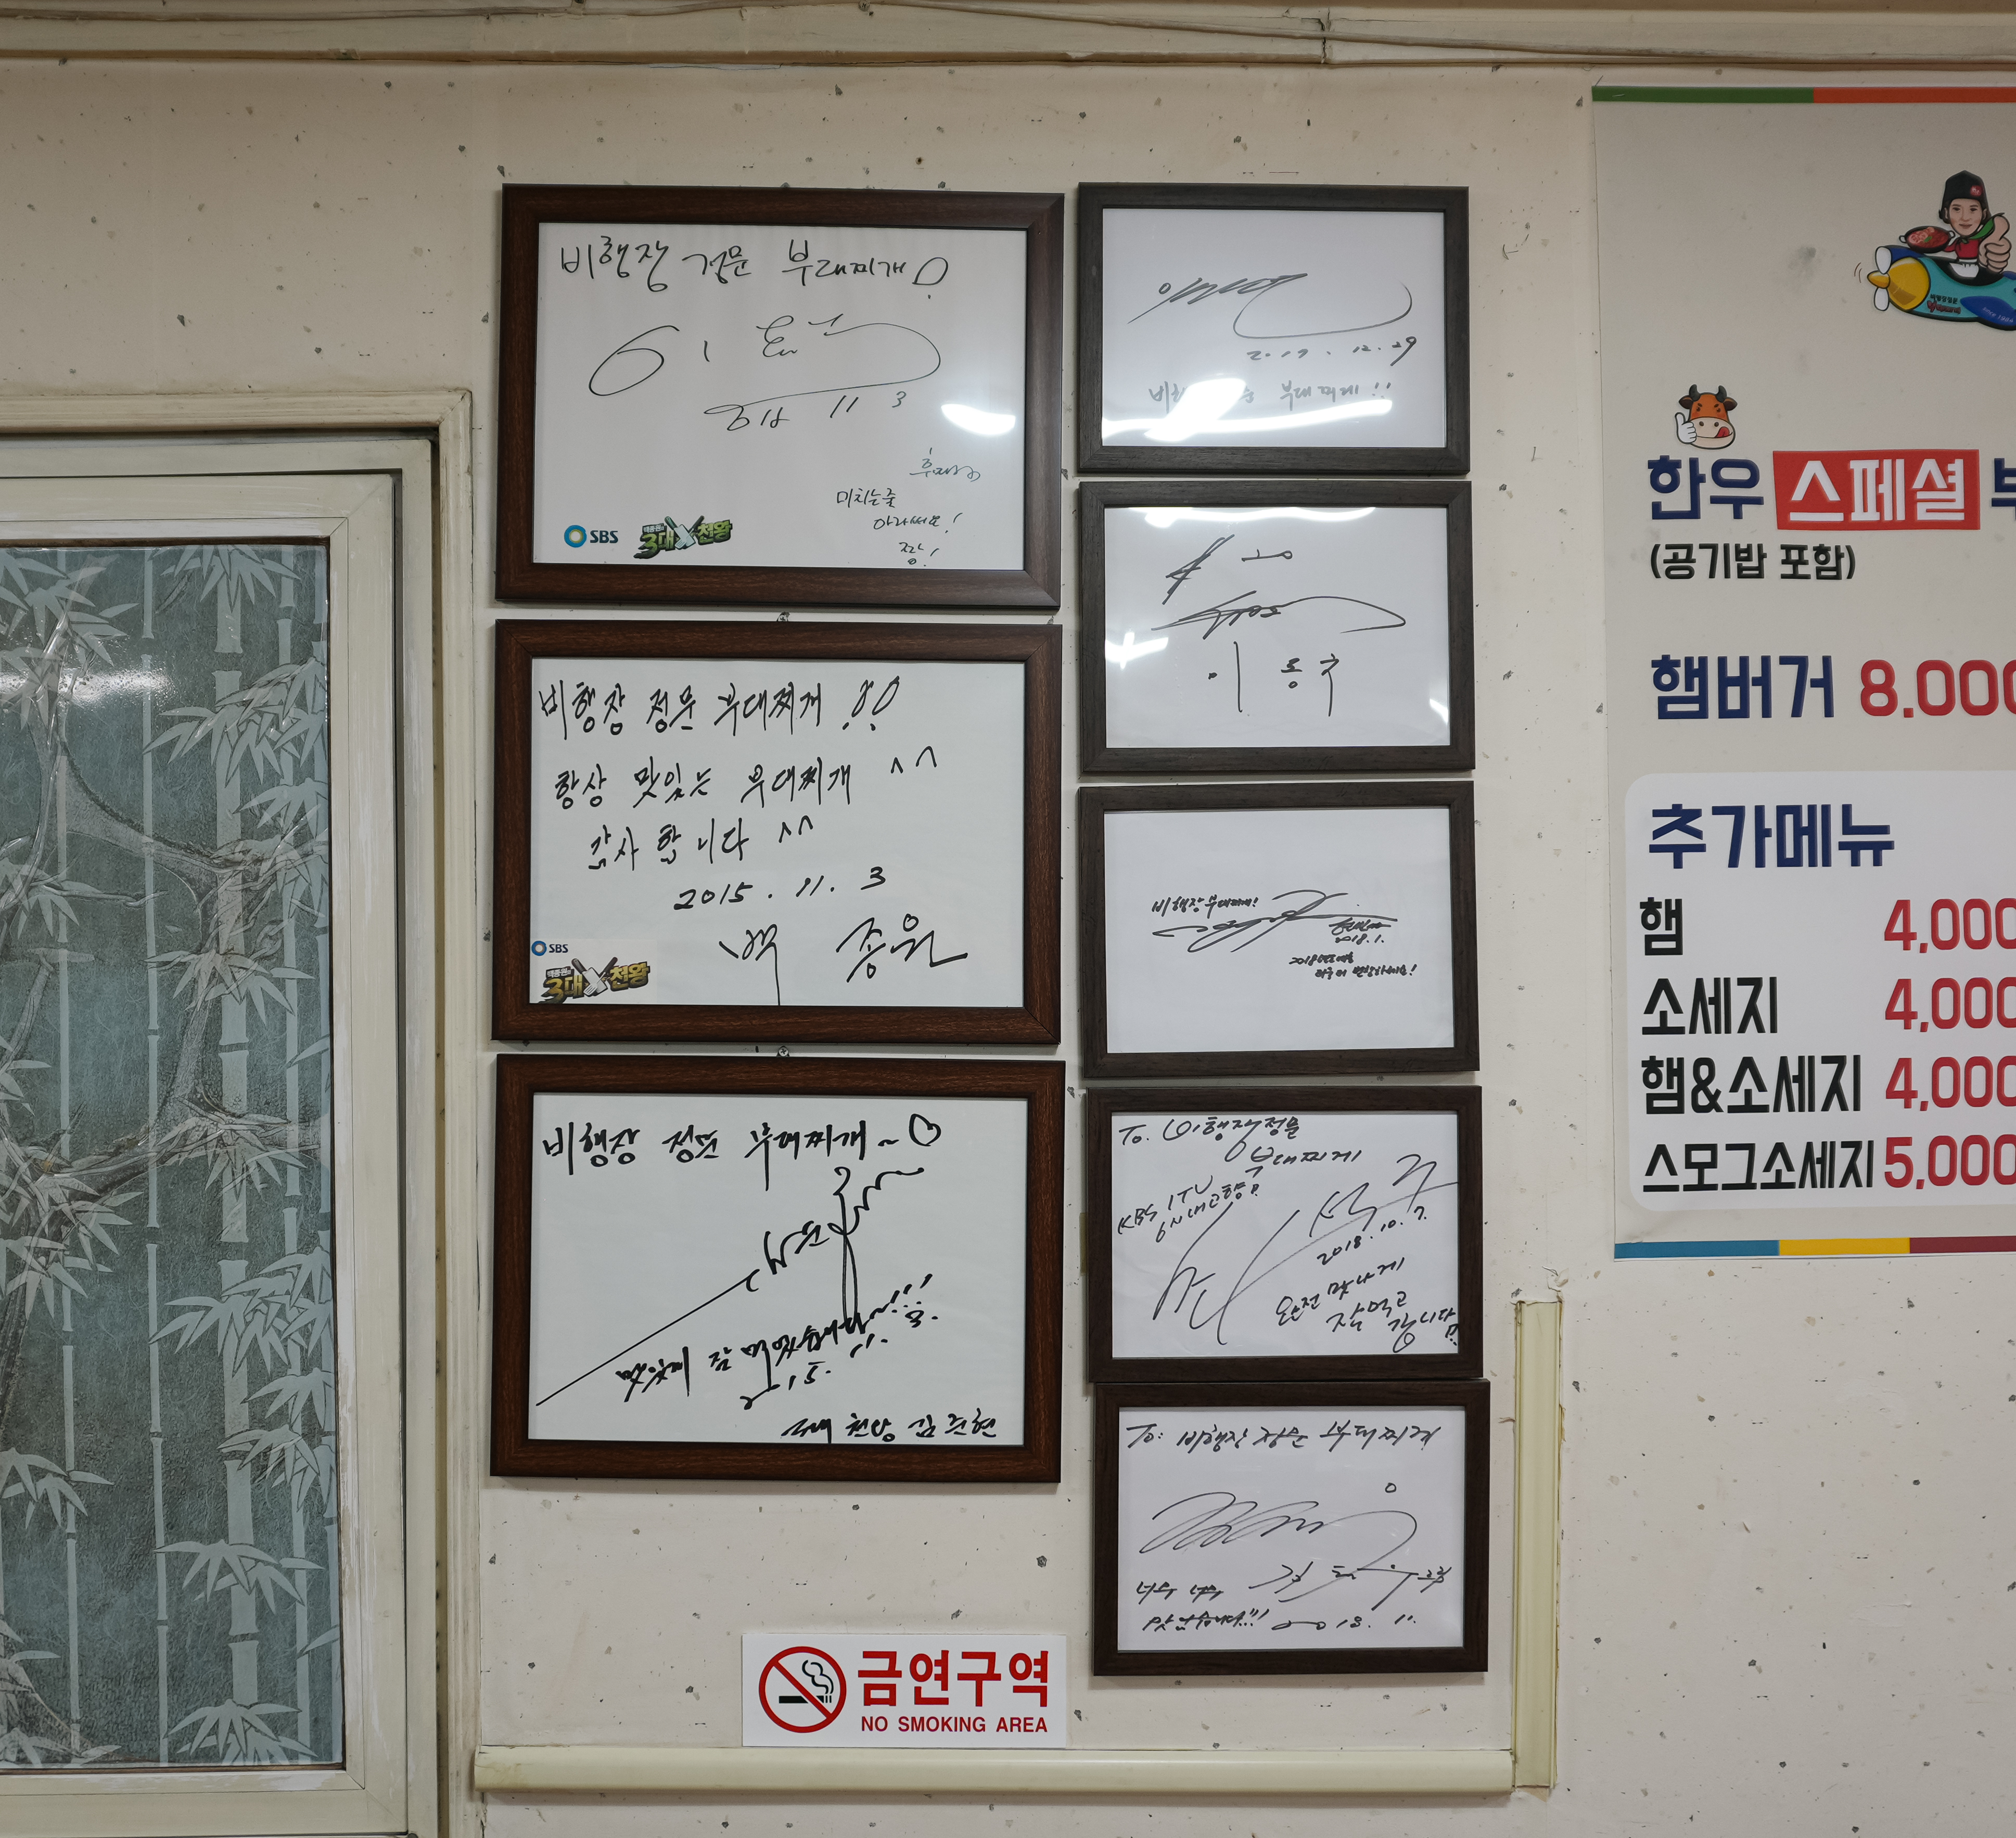 비행장 정문 부대찌개!
11 3
미치는줄
아라써요!
짱!
SBS
백종원의
3대천왕
비행장 정문 부대찌개!!
항상 맛있는 부대찌개 ^^
감사합니다 ^^
2015. 11. 3
백종원
SBS
백종원의
3대천왕
비행장 정문 부대찌개~♡
맛있게 잘 먹었습니다~!!!
2015. 11. 3.
3대천왕 김준현
2017. 12. 29
부대찌개!!
이동국
비행장 부대찌개!
2018.1.
To. 비행장정문
부대찌개
KBS 1TV
6시내고향!
2018. 10. 7.
완전 맛나게
잘먹고
갑니다!
To: 비행장 정문 부대찌개
너무 너무
맛있습니다!!!
2018. 11.
금연구역
NO SMOKING AREA
한우 스페셜
(공기밥 포함)
햄버거 8,000
추가메뉴
햄 4,000
소세지 4,000
햄&소세지 4,000
스모그소세지 5,000